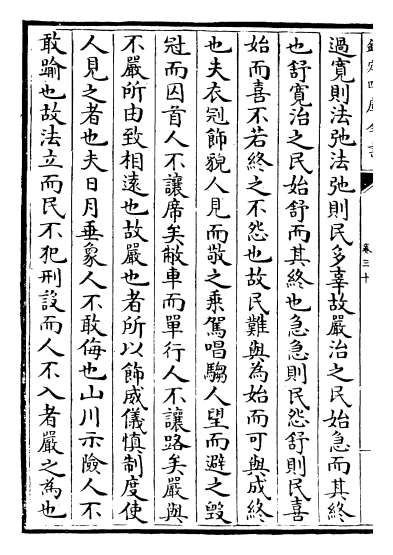 欽定四庫全書
卷三十
過寛則法弛法弛則民多辜故嚴治之民始急而其終
也舒寛治之民始舒而其終也急急則民怨舒則民喜
始而喜不若終之不怨也故民難與為始而可與成終
也夫衣冠飾貌人見而敬之乗駕唱騶人望而避之毀
冠而囚首人不讓席矣敝車而單行人不讓路矣嚴與
不嚴所由致相逺也故嚴也者所以飾威儀慎制度使
人見之者也夫日月垂象人不敢侮也山川示險人不
敢踰也故法立而民不犯刑設而人不入者嚴之為也